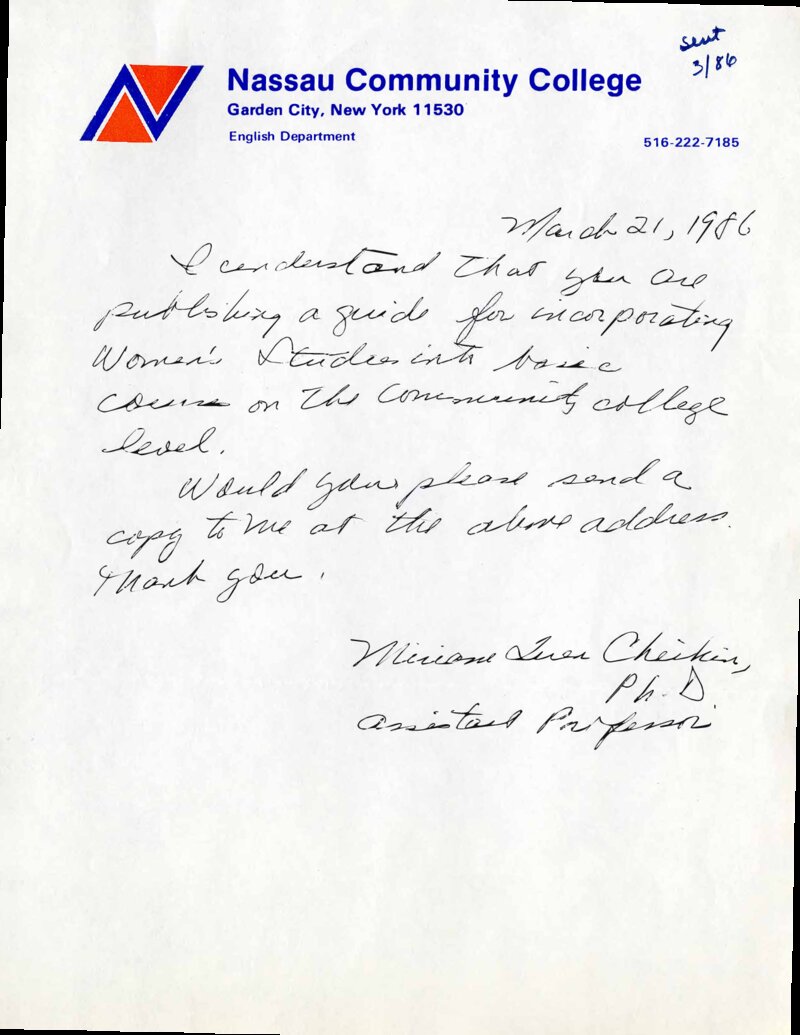 sent
3/86
Nassau Community College
Garden City, New York 11530
English Department
516-222-7185
March 21, 1986
I understand that you are
publishing a guide for incorporating
Women's Studies into basic
course on the community college
level.
Would you please send a
copy to me at the above address.
Thank you.
Cheikin,
Ph.D
Assistant Professor